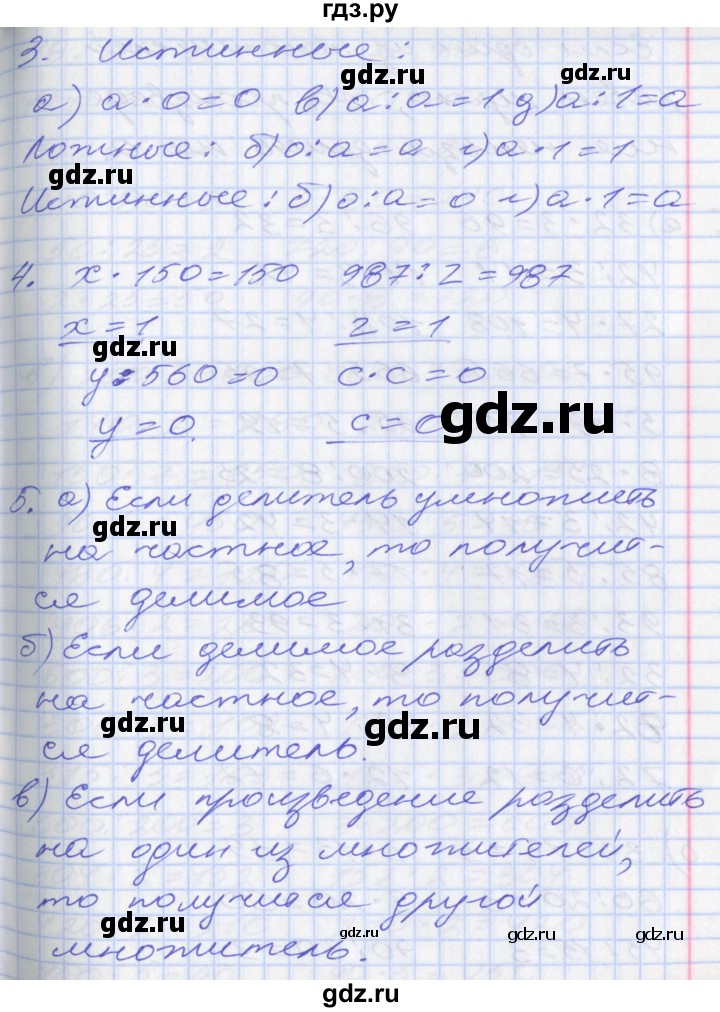 гдз.ру
3. Истинные:
а) a · 0 = 0 в) a : a = 1 д) a : 1 = a
Ложные: б) 0 : a = a г) a · 1 = 1
Истинные: б) 0 : a = 0 г) a · 1 = a
4. x · 150 = 150 987 : z = 987
x = 1 z = 1
y : 560 = 0 c · c = 0
y = 0. c = 0
5. а) Если делитель умножить
на частное, то получит-
ся делимое
б) Если делимое разделить
на частное, то получит-
ся делитель.
в) Если произведение разделить
на один из множителей,
то получится другой
множитель.
gdz.ru
gdz.ru
gdz.ru
gdz.ru
gdz.ru
gdz.ru
gdz.ru
gdz.ru
gdz.ru
gdz.ru
gdz.ru
gdz.ru
gdz.ru